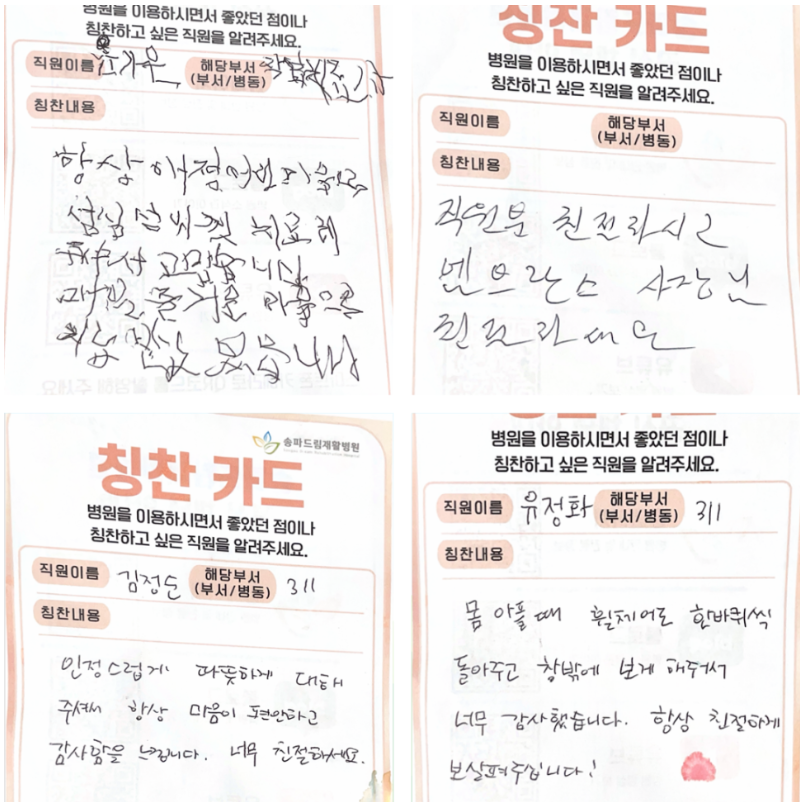 병원을 이용하시면서 좋았던 점이나
칭찬하고 싶은 직원을 알려주세요.
직원이름 해당부서
(부서/병동)
칭찬내용
항상
치료해
고맙습니다
즐거운 마음으로
칭찬 카드
병원을 이용하시면서 좋았던 점이나
칭찬하고 싶은 직원을 알려주세요.
직원이름 해당부서
(부서/병동)
칭찬내용
직원분 친절하시고
사장님
송파드림재활병원
칭찬 카드
병원을 이용하시면서 좋았던 점이나
칭찬하고 싶은 직원을 알려주세요.
직원이름 김정순 해당부서
(부서/병동) 311
칭찬내용
인정스럽게 따뜻하게 대해
주셔서 항상 마음이 편안하고
감사함을 느낍니다. 너무 친절하세요.
칭찬 카드
병원을 이용하시면서 좋았던 점이나
칭찬하고 싶은 직원을 알려주세요.
직원이름 유정화 해당부서
(부서/병동) 311
칭찬내용
몸 아플때 휠체어로 한바퀴씩
돌아주고 창밖에 보게 해주셔서
너무 감사했습니다. 항상 친절하게
보살펴주십니다!